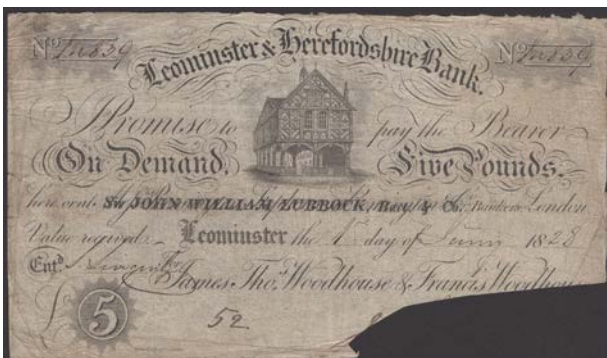 No No
Leominster & Herefordshire Bank.
Promise to pay the Bearer
On Demand. Five Pounds.
here or at Sir JOHN WILLIAM LUBBOCK, Bart. & Co. Bankers London
Value received. Leominster the 1st day of 1828
Entd For James Thos. Woodhouse & Francis
£ 5 52